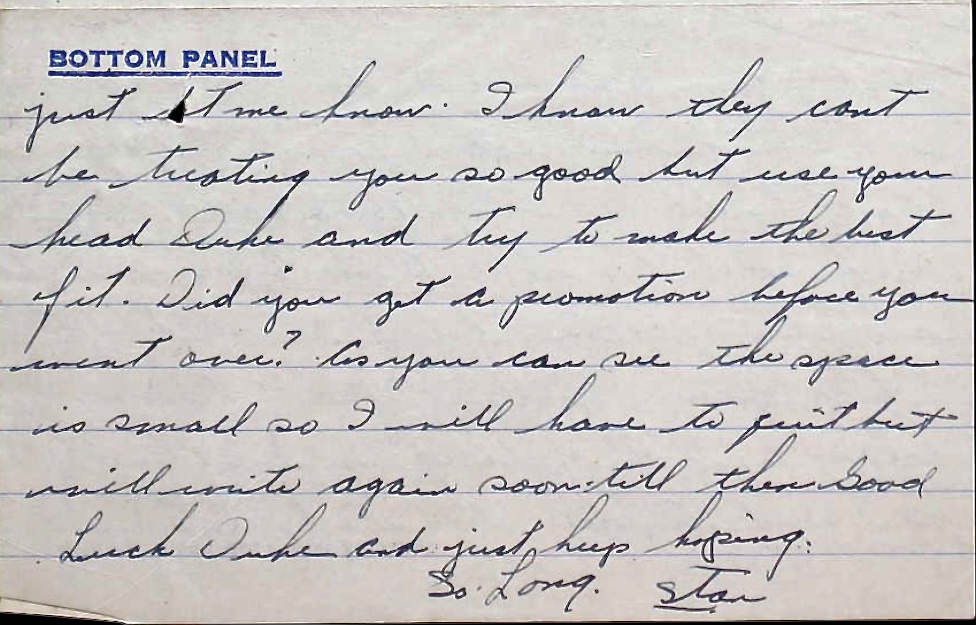 BOTTOM PANEL
just let me know. I know they cant
be treating you so good but use your
head Duke and try to make the best
of it. Did you get a promotion before you
went over? As you can see the space
is small so I will have to quit but
will write again soon. till then Good
Luck Duke and just keep hoping.
So Long. Stan